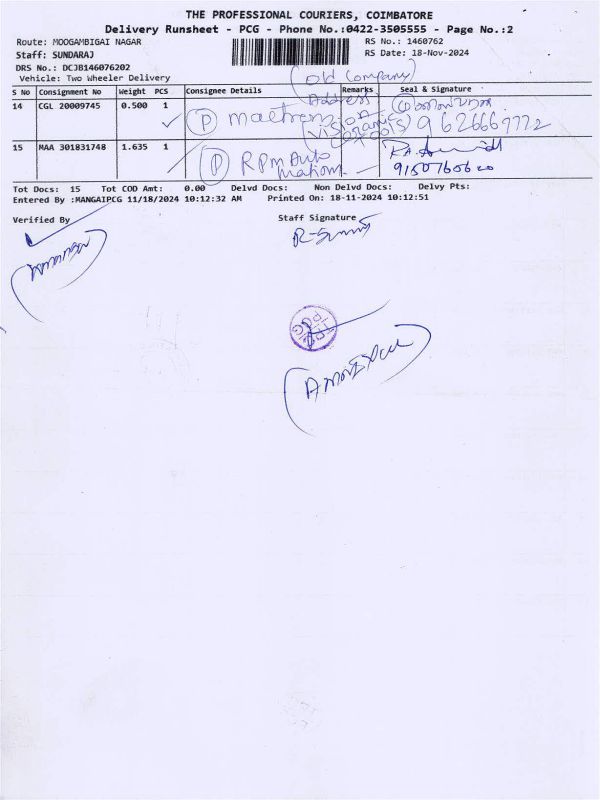 THE PROFESSIONAL COURIERS, COIMBATORE
Delivery Runsheet - PCG - Phone No.:0422-3505555 - Page No.:2
Route: MOOGAMBIGAI NAGAR
RS No.: 1460762
Staff: SUNDARAJ
RS Date: 18-Nov-2024
DRS No.: DCJB146076202
Vehicle: Two Wheeler Delivery
(Old Company)
Address
S No Consignment No Weight PCS Consignee Details Remarks Seal & Signature
14 CGL 20009745 0.500 1 P 9626669772
15 MAA 301831748 1.635 1 P RPM Automations
Tot Docs: 15 Tot COD Amt: 0.00 Delvd Docs: Non Delvd Docs: Delvy Pts:
Entered By :MANGAIPCG 11/18/2024 10:12:32 AM Printed On: 18-11-2024 10:12:51
Verified By
Staff Signature
PCG